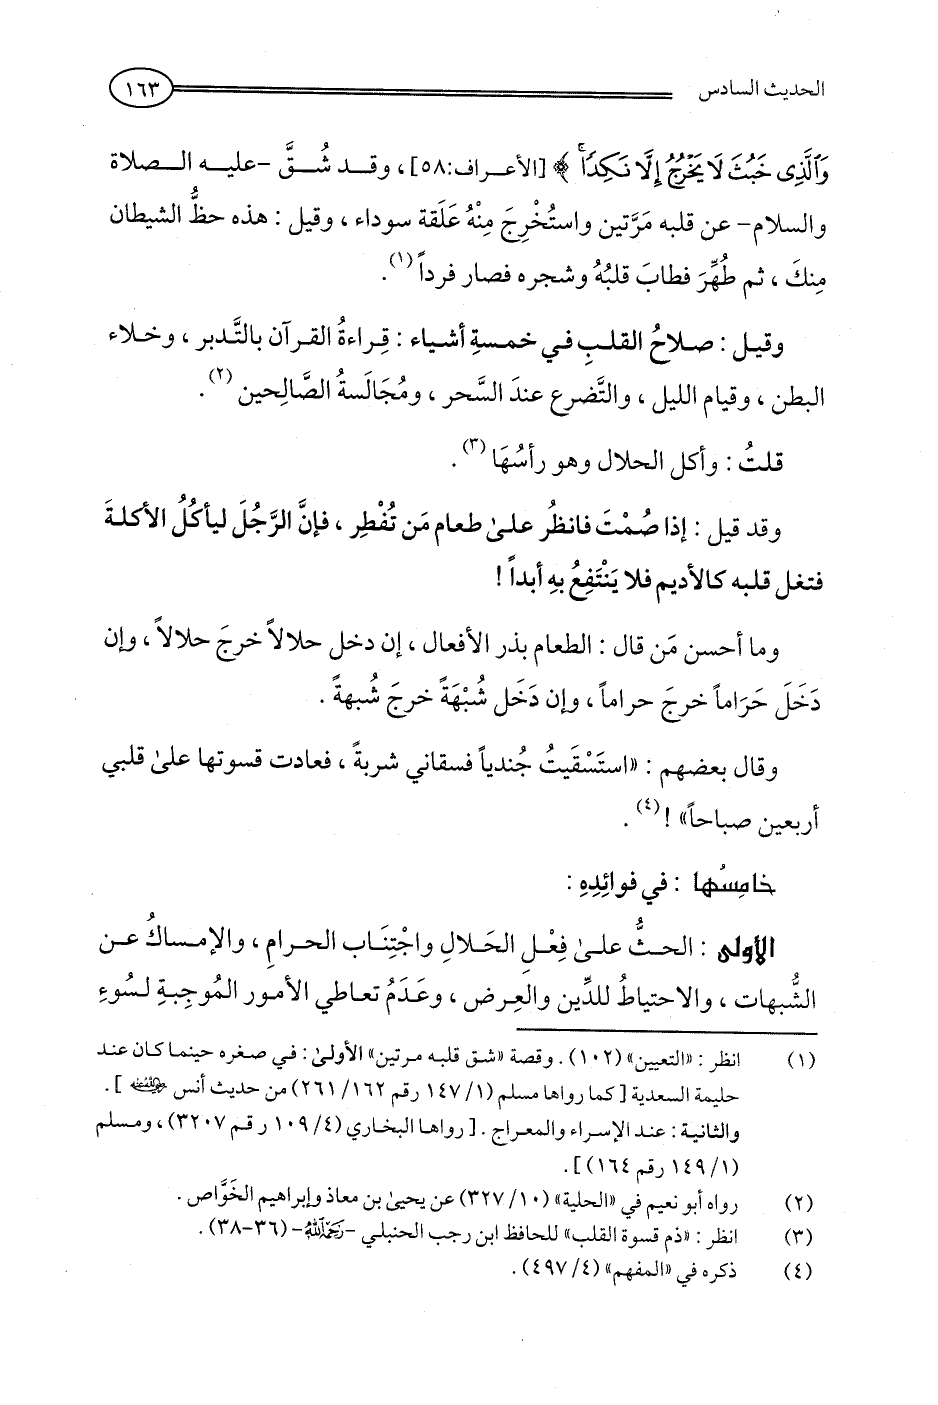 الحديث السادس ١٦٣
وَٱلَّذِى خَبُثَ لَا يَخْرُجُ إِلَّا نَكِدًا ﴾ [الأعراف:٥٨]، وقد شُقَّ -عليه الصلاة
والسلام- عن قلبه مَرَّتين واستُخْرِجَ مِنْهُ عَلَقة سوداء ، وقيل : هذه حظُّ الشيطان
مِنكَ ، ثم طُهِّرَ فطابَ قلبُهُ وشجره فصار فرداً (١).
وقيل : صلاحُ القلبِ في خمسةِ أشياء : قِراءةُ القرآن بالتَّدبر ، وخلاء
البطن ، وقيام الليل ، والتَّضرع عندَ السَّحر ، ومُجَالَسةُ الصَّالِحين (٢).
قلتُ : وأكل الحلال وهو رأسُهَا (٣).
وقد قيل : إذا صُمْتَ فانظُر علىٰ طعام مَن تُفْطِر ، فإنَّ الرَّجُلَ ليأكُلُ الأكلةَ
فتغل قلبه كالأديم فلا يَنْتَفِعُ بِهِ أبداً !
وما أحسن مَن قال : الطعام بذر الأفعال ، إن دخل حلالاً خرجَ حلالاً ، وإن
دَخَلَ حَرَاماً خرجَ حراماً ، وإن دَخَل شُبْهَةً خرجَ شُبهةً .
وقال بعضهم : «استَسْقَيتُ جُندياً فسقاني شربةً ، فعادت قسوتها علىٰ قلبي
أربعين صباحاً» ! (٤) .
خامِسُها : في فوائِدِهِ :
الأولى : الحثُّ علىٰ فِعْلِ الحَلال واجْتِنَاب الحرامِ ، والإمساكُ عن
الشُّبهات ، والاحتياطُ للدِّين والعِرض ، وعَدَمُ تعاطي الأمور المُوجِبةِ لسُوءِ
(١) انظر : «التعيين» (١٠٢) . وقصة «شق قلبه مرتين» الأولىٰ : في صغره حينما كان عند
حليمة السعدية [ كما رواها مسلم (١/ ١٤٧ رقم ١٦٢/ ٢٦١) من حديث أنس رضي الله عنه ] .
والثانية : عند الإسراء والمعراج . [ رواها البخاري (٤/ ١٠٩ رقم ٣٢٠٧) ، ومسلم
(١/ ١٤٩ رقم ١٦٤) ] .
(٢) رواه أبو نعيم في «الحلية» (١٠/ ٣٢٧) عن يحيىٰ بن معاذ وإبراهيم الخَوَّاص .
(٣) انظر : «ذم قسوة القلب» للحافظ ابن رجب الحنبلي -رَحِمَهُ اللهُ- (٣٦-٣٨) .
(٤) ذكره في «المفهم» (٤/ ٤٩٧) .